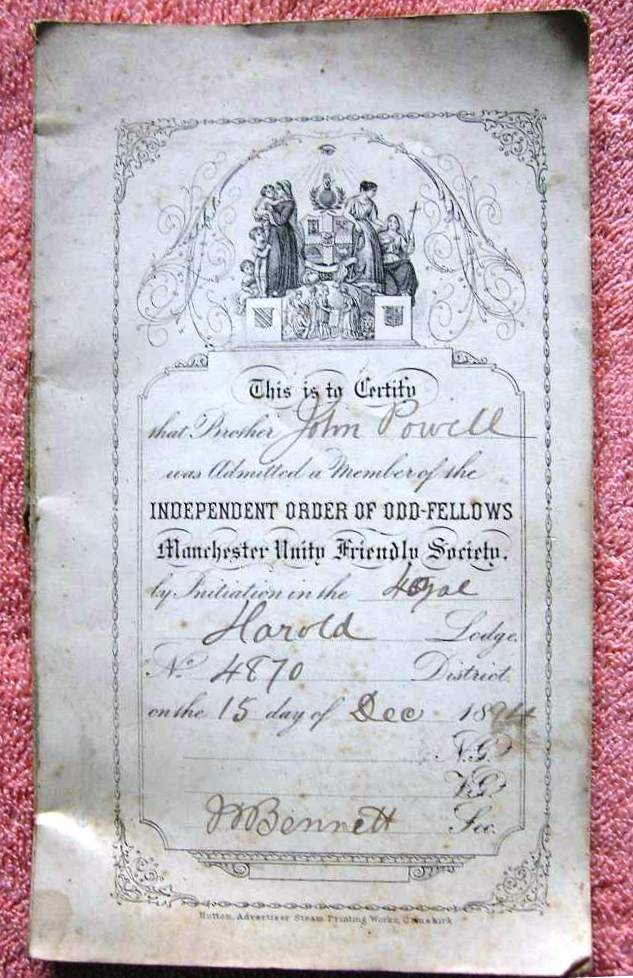 This is to Certify
that Brother John Powell
was Admitted a Member of the
INDEPENDENT ORDER OF ODD-FELLOWS
Manchester Unity Friendly Society,
by Initiation in the Loyal
Harold Lodge.
No. 4870 District.
on the 15 day of Dec 1894
N.G.
V.G.
Bennett Sec.
Hutton, Advertiser Steam Printing Works, Ormskirk